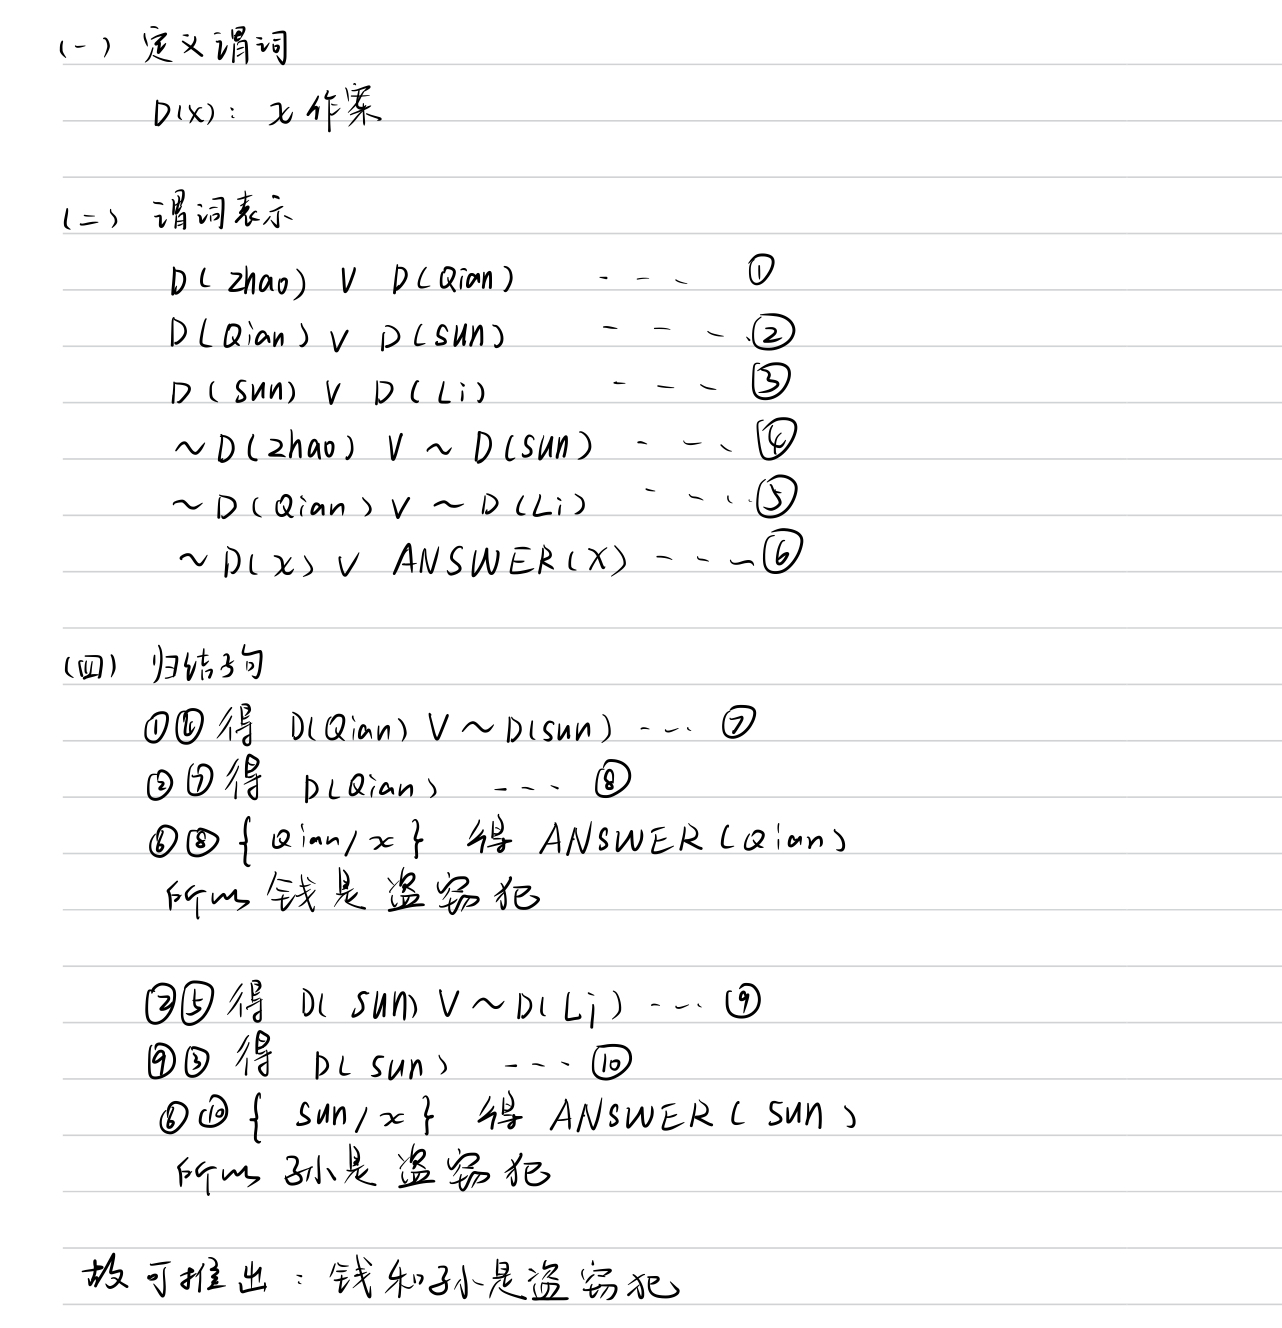 (一) 定义谓词
D(X)： x 作案
(二) 谓词表示
D( zhao) V D(Qian) --- ①
D(Qian) V D(sun) --- ②
D(sun) V D(Li) --- ③
~D(zhao) V ~D(sun) --- ④
~D(Qian) V ~D(Li) --- ⑤
~D(x) V ANSWER(X) --- ⑥
(四) 归结子句
①④得 D(Qian) V ~D(sun) --- ⑦
②⑦得 D(Qian) --- ⑧
⑥⑧{ Qian/x} 得 ANSWER(Qian)
所以 钱是盗窃犯
②⑤得 D(sun) V ~D(Li) --- ⑨
⑨③得 D(sun) --- ⑩
⑥⑩{ sun/x} 得 ANSWER( sun )
所以 孙是盗窃犯
故可推出：钱和孙是盗窃犯